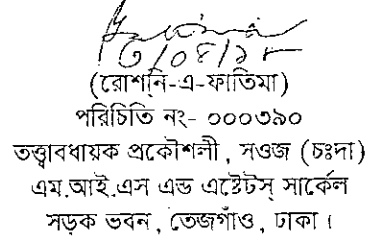 (রোশনি-এ-ফাতিমা)
পরিচিতি নং- ০০০৩৯০
তত্ত্বাবধায়ক প্রকৌশলী, সওজ (চঃদা)
এম.আই.এস এন্ড এষ্টেটস্ সার্কেল
সড়ক ভবন, তেজগাঁও, ঢাকা।